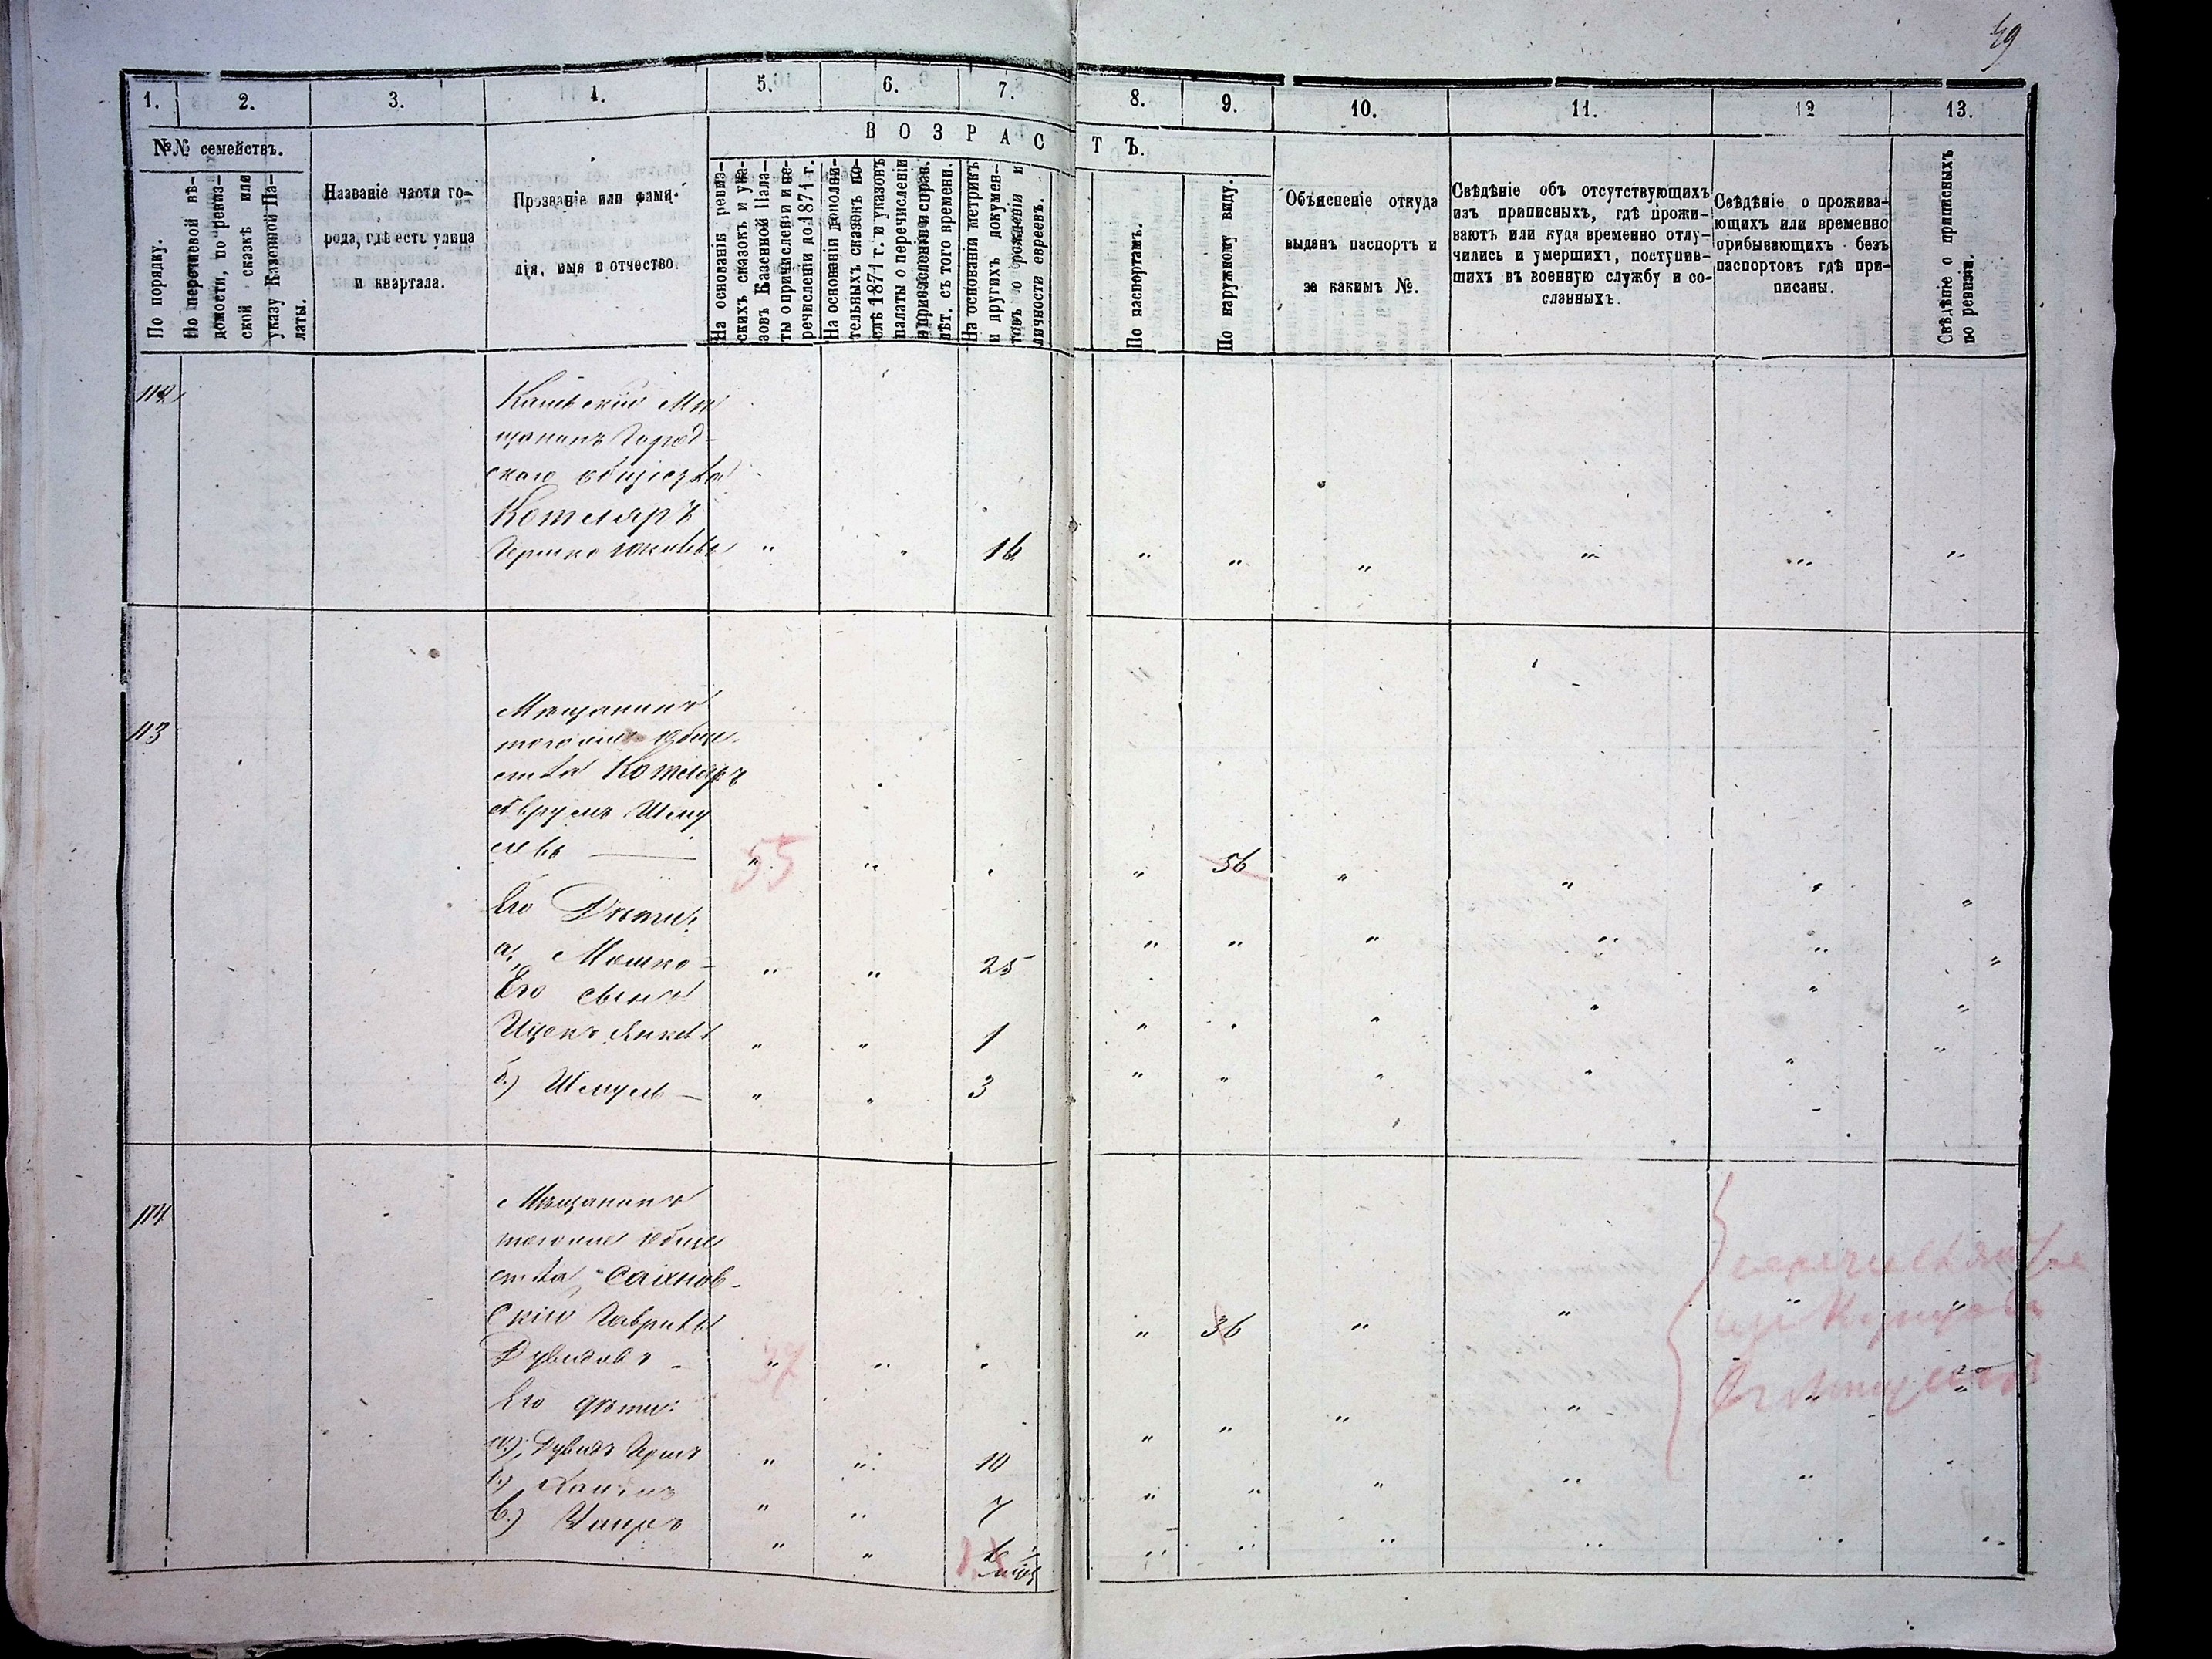 49
1. 2. 3. 4. 5. 6. 7. 8. 9. 10. 11. 12 13.
№№ семействъ.
ВОЗРАСТЪ.
По порядку.
По перечневой вѣ-
домости, по ревиз-
ской сказкѣ или
указу Казенной Па-
латы.
Названіе части го-
рода, гдѣ есть улица
и квартала.
Прозваніе или фами-
лія, имя и отчество.
На основаніи ревиз-
скихъ сказокъ и ука-
зовъ Казенной Пала-
ты о причисленіи и пе-
речисленіи до 1871 г.
На основаніи дополни-
тельныхъ сказокъ по-
слѣ 1871 г. и указовъ
палаты о перечисленіи
и причисленіи и справ.
лѣт. съ того времени.
На основаніи метрикъ
и другихъ докумен-
товъ о рожденіи и
личности евреевъ.
По паспортамъ.
По наружному виду.
Объясненіе откуда
выданъ паспортъ и
за какимъ №.
Свѣдѣніе объ отсутствующихъ
изъ приписныхъ, гдѣ прожи-
ваютъ или куда временно отлу-
чились и умершихъ, поступив-
шихъ въ военную службу и со-
сланныхъ.
Свѣдѣніе о прожива-
ющихъ или временно
прибывающихъ безъ
паспортовъ гдѣ при-
писаны.
Свѣдѣніе о приписныхъ
по ревизіи.
Каневскій Мѣ
щанинъ Город-
скаго общества
Котляръ
Гершко " " 16 " " " " " "
113
Мѣщанинъ
тогоже обще
ства Котляръ
Аврумъ Шму
левъ 55 " " " 56 " " " "
Его Дѣти:
а, Мошко - " " 25 " " " " " "
Его сынъ
Ицекъ Янкель " " 1 " " " " " "
б.) Шмуль - " " 3 " " " " " "
114
Мѣщанинъ
тогоже обще
ства, Сахнов-
скій Гаврило
Дувидовъ - 37 " " " 36 " " " "
Его дѣти:
а.), Дувидъ Герш " " 10 " " " " " "
б.) Хаимъ " " 7 " " " " " "
в.) " "